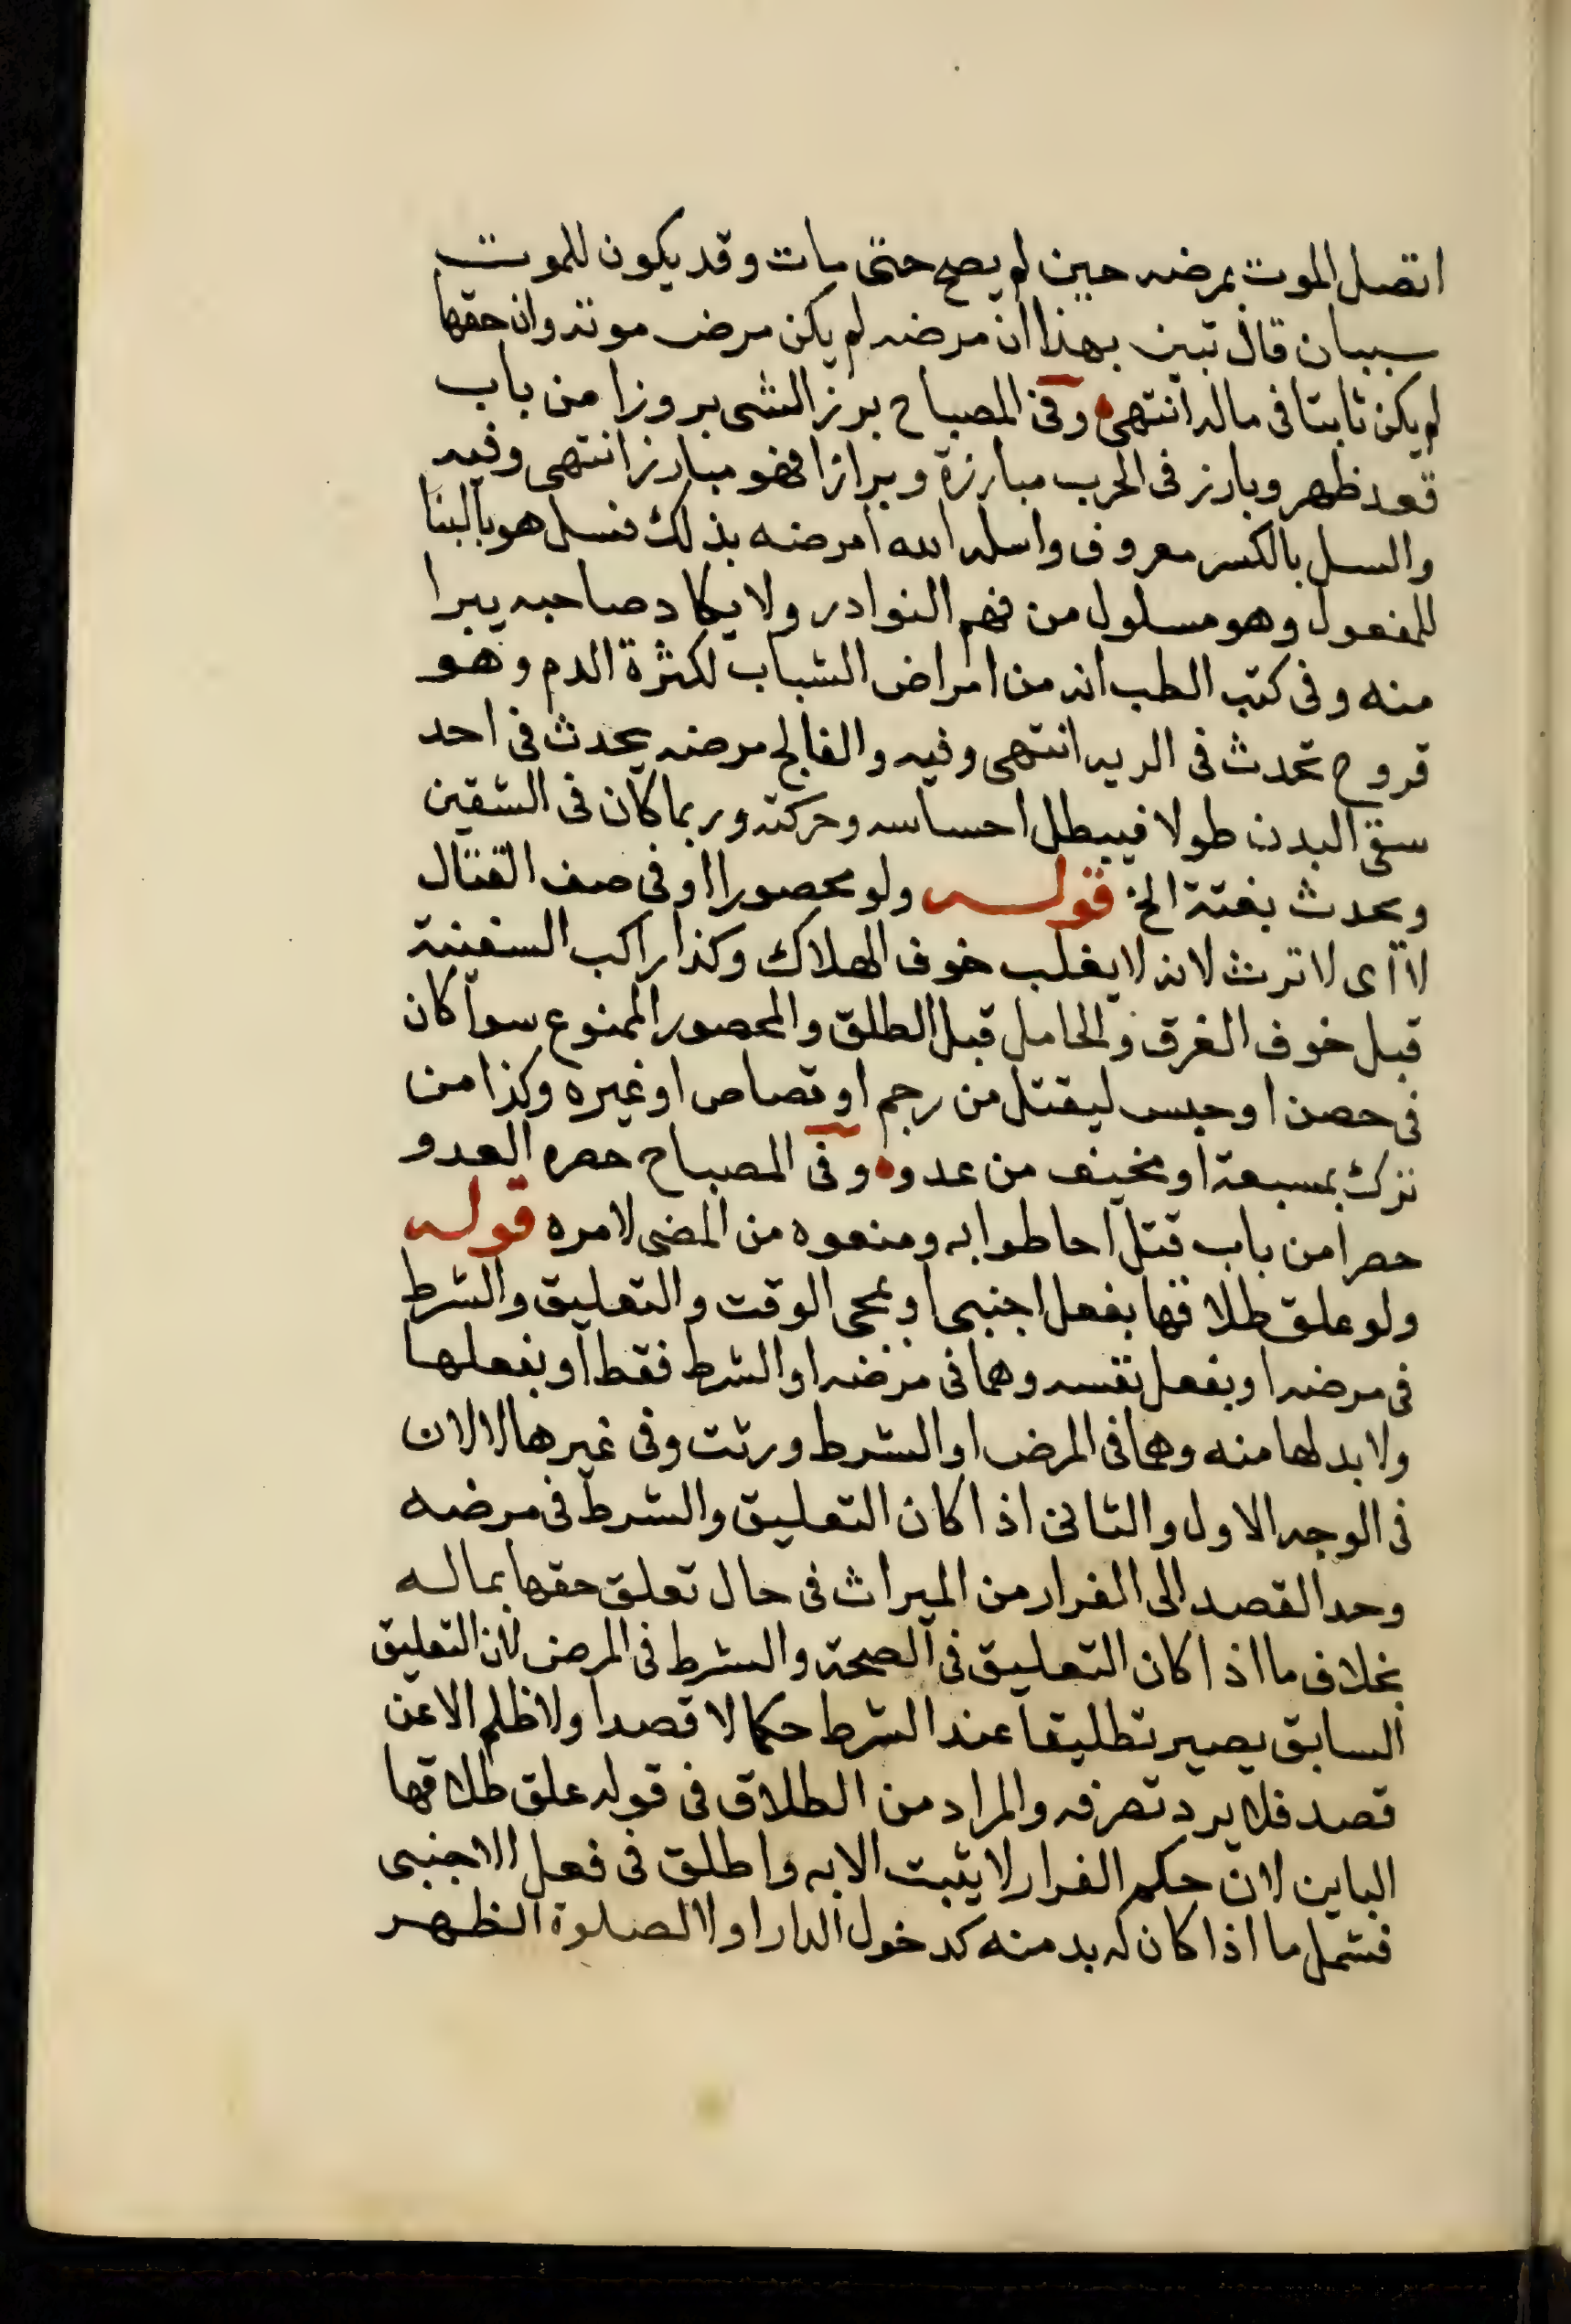 اتصل الموت بمرضه حين لم يصح حتى مات وقد يكون للموت
سببان قال تبين بهذا ان مرضه لم يكن مرض موته وان حقها
لم يكن ثابتا فى ماله انتهى وفى المصباح برز الشى بروزا من باب
قعد ظهر وبارز فى الحرب مبارزة وبرازا فهو مبارز انتهى وفيه
والسل بالكسر معروف واسله الله امرضه بذلك فسل هو بالبنا
للمفعول وهو مسلول من فهم النوادر ولا يكاد صاحبه يبرا
منه وفى كتب الطب انه من امراض الشباب لكثرة الدم وهو
قروح تحدث فى الريه انتهى وفيه والفالج مرضه يحدث فى احد
سقى البدن طولا فيبطل احساسه وحركته وربما كان فى الشقين
ويحدث بغتة الخ قوله ولو محصورا او فى صف القتال
لا اى لا ترث لانه لا يغلب خوف الهلاك وكذا راكب السفينة
قبل خوف الغرق والحامل قبل الطلق والمحصور الممنوع سوا كان
فى حصن او حبس ليقتل من رجم او قصاص او غيره وكذا من
نزل بمسبعة او مخيف من عدو وفى المصباح حصره العدو
حصرا من باب قتل احاطوا به ومنعوه من المضى لامره قوله
ولو علق طلاقها بفعل اجنبى او بمجى الوقت والتعليق والشرط
فى مرضه او بفعل نفسه وهما فى مرضه او الشرط فقط او بفعلها
ولا بد لها منه وهما فى المرض او الشرط ورثت وفى غيرها لا لان
فى الوجه الاول والثانى اذا كان التعليق والشرط فى مرضه
وجد القصد الى الفرار من الميراث فى حال تعلق حقها بماله
بخلاف ما اذا كان التعليق فى الصحة والشرط فى المرض لان التعليق
السابق يصير تطليقا عند الشرط حكما لا قصدا ولا ظلم الا عن
قصد فلا يرد تصرفه والمراد من الطلاق فى قوله علق طلاقها
الباين لان حكم الفرار لا يثبت الا به واطلق فى فعل الاجنبى
فشمل ما اذا كان له بد منه كدخول الدار او لا لصلوة الظهر